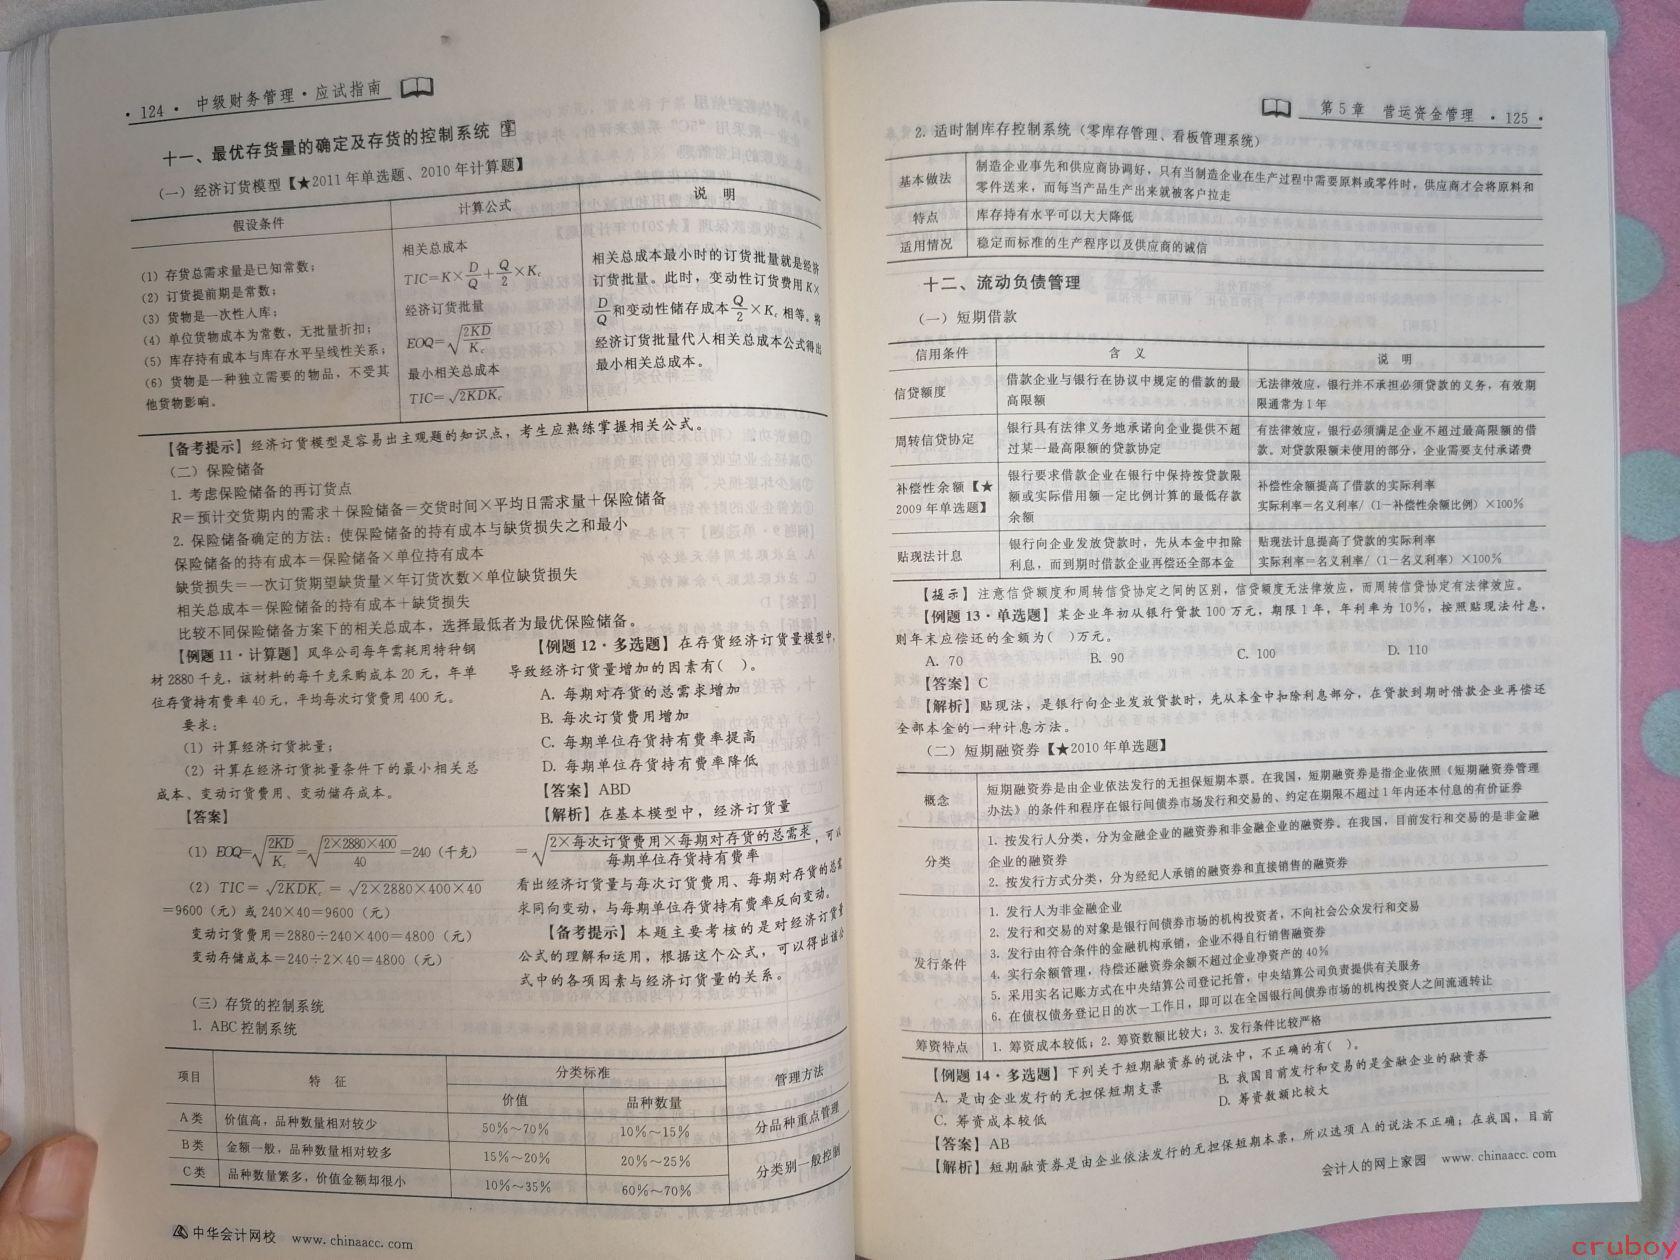 · 124 · 中级财务管理·应试指南
十一、最优存货量的确定及存货的控制系统
(一)经济订货模型【★2011年单选题、2010年计算题】
假设条件 计算公式 说 明
(1)存货总需求量是已知常数;
(2)订货提前期是常数;
(3)货物是一次性入库;
(4)单位货物成本为常数,无批量折扣;
(5)库存持有成本与库存水平呈线性关系;
(6)货物是一种独立需要的物品,不受其
他货物影响。
相关总成本
TIC=K×D/Q+Q/2×Kc
经济订货批量
EOQ=√(2KD/Kc)
最小相关总成本
TIC=√(2KDKc)
相关总成本最小时的订货批量就是经济
订货批量。此时,变动性订货费用K×
D/Q和变动性储存成本Q/2×Kc相等。将
经济订货批量代入相关总成本公式得出
最小相关总成本。
【备考提示】经济订货模型是容易出主观题的知识点,考生应熟练掌握相关公式。
(二)保险储备
1. 考虑保险储备的再订货点
R=预计交货期内的需求+保险储备=交货时间×平均日需求量+保险储备
2. 保险储备确定的方法:使保险储备的持有成本与缺货损失之和最小
保险储备的持有成本=保险储备×单位持有成本
缺货损失=一次订货期望缺货量×年订货次数×单位缺货损失
相关总成本=保险储备的持有成本+缺货损失
比较不同保险储备方案下的相关总成本,选择最低者为最优保险储备。
【例题11·计算题】风华公司每年需耗用特种钢
材2880千克,该材料的每千克采购成本20元,年单
位存货持有费率40元,平均每次订货费用400元。
要求:
(1)计算经济订货批量;
(2)计算在经济订货批量条件下的最小相关总
成本、变动订货费用、变动储存成本。
【答案】
(1)EOQ=√(2KD/Kc)=√(2×2880×400/40)=240(千克)
(2)TIC=√(2KDKc)=√(2×2880×400×40)
=9600(元)或240×40=9600(元)
变动订货费用=2880÷240×400=4800(元)
变动存储成本=240÷2×40=4800(元)
【例题12·多选题】在存货经济订货量模型中,
导致经济订货量增加的因素有( )。
A. 每期对存货的总需求增加
B. 每次订货费用增加
C. 每期单位存货持有费率提高
D. 每期单位存货持有费率降低
【答案】ABD
【解析】在基本模型中,经济订货量
=√(2×每次订货费用×每期对存货的总需求/每期单位存货持有费率),可以
看出经济订货量与每次订货费用、每期对存货的总需
求同向变动,与每期单位存货持有费率反向变动。
【备考提示】本题主要考核的是对经济订货量
公式的理解和运用,根据这个公式,可以得出该公
式中的各项因素与经济订货量的关系。
(三)存货的控制系统
1. ABC控制系统
项目 特 征 分类标准 管理方法
价值 品种数量
A类 价值高,品种数量相对较少 50%~70% 10%~15% 分品种重点管理
B类 金额一般,品种数量相对较多 15%~20% 20%~25% 分类别一般控制
C类 品种数量繁多,价值金额却很小 10%~35% 60%~70%
中华会计网校 www.chinaacc.com
第5章 营运资金管理 · 125 ·
2. 适时制库存控制系统(零库存管理、看板管理系统)
基本做法 制造企业事先和供应商协调好,只有当制造企业在生产过程中需要原料或零件时,供应商才会将原料和
零件送来,而每当产品生产出来就被客户拉走
特点 库存持有水平可以大大降低
适用情况 稳定而标准的生产程序以及供应商的诚信
十二、流动负债管理
(一)短期借款
信用条件 含 义 说 明
信贷额度 借款企业与银行在协议中规定的借款的最
高限额
无法律效应,银行并不承担必须贷款的义务,有效期
限通常为1年
周转信贷协定 银行具有法律义务地承诺向企业提供不超
过某一最高限额的贷款协定
有法律效应,银行必须满足企业不超过最高限额的借
款。对贷款限额未使用的部分,企业需要支付承诺费
补偿性余额【★
2009年单选题】
银行要求借款企业在银行中保持按贷款限
额或实际借用额一定比例计算的最低存款
余额
补偿性余额提高了借款的实际利率
实际利率=名义利率/(1-补偿性余额比例)×100%
贴现法计息 银行向企业发放贷款时,先从本金中扣除
利息,而到期时借款企业再偿还全部本金
贴现法计息提高了贷款的实际利率
实际利率=名义利率/(1-名义利率)×100%
【提示】注意信贷额度和周转信贷协定之间的区别,信贷额度无法律效应,而周转信贷协定有法律效应。
【例题13·单选题】某企业年初从银行贷款100万元,期限1年,年利率为10%,按照贴现法付息,
则年末应偿还的金额为( )万元。
A. 70 B. 90 C. 100 D. 110
【答案】C
【解析】贴现法,是银行向企业发放贷款时,先从本金中扣除利息部分,在贷款到期时借款企业再偿还
全部本金的一种计息方法。
(二)短期融资券【★2010年单选题】
概念 短期融资券是由企业依法发行的无担保短期本票。在我国,短期融资券是指企业依照《短期融资券管理
办法》的条件和程序在银行间债券市场发行和交易的、约定在期限不超过1年内还本付息的有价证券
分类 1. 按发行人分类,分为金融企业的融资券和非金融企业的融资券。在我国,目前发行和交易的是非金融
企业的融资券
2. 按发行方式分类,分为经纪人承销的融资券和直接销售的融资券
发行条件 1. 发行人为非金融企业
2. 发行和交易的对象是银行间债券市场的机构投资者,不向社会公众发行和交易
3. 发行由符合条件的金融机构承销,企业不得自行销售融资券
4. 实行余额管理,待偿还融资券余额不超过企业净资产的40%
5. 采用实名记账方式在中央结算公司登记托管,中央结算公司负责提供有关服务
6. 在债权债务登记日的次一工作日,即可以在全国银行间债券市场的机构投资人之间流通转让
筹资特点 1. 筹资成本较低;2. 筹资数额比较大;3. 发行条件比较严格
【例题14·多选题】下列关于短期融资券的说法中,不正确的有( )。
A. 是由企业发行的无担保短期支票 B. 我国目前发行和交易的是金融企业的融资券
C. 筹资成本较低 D. 筹资数额比较大
【答案】AB
【解析】短期融资券是由企业依法发行的无担保短期本票,所以选项A的说法不正确;在我国,目前
会计人的网上家园 www.chinaacc.com
cruboy